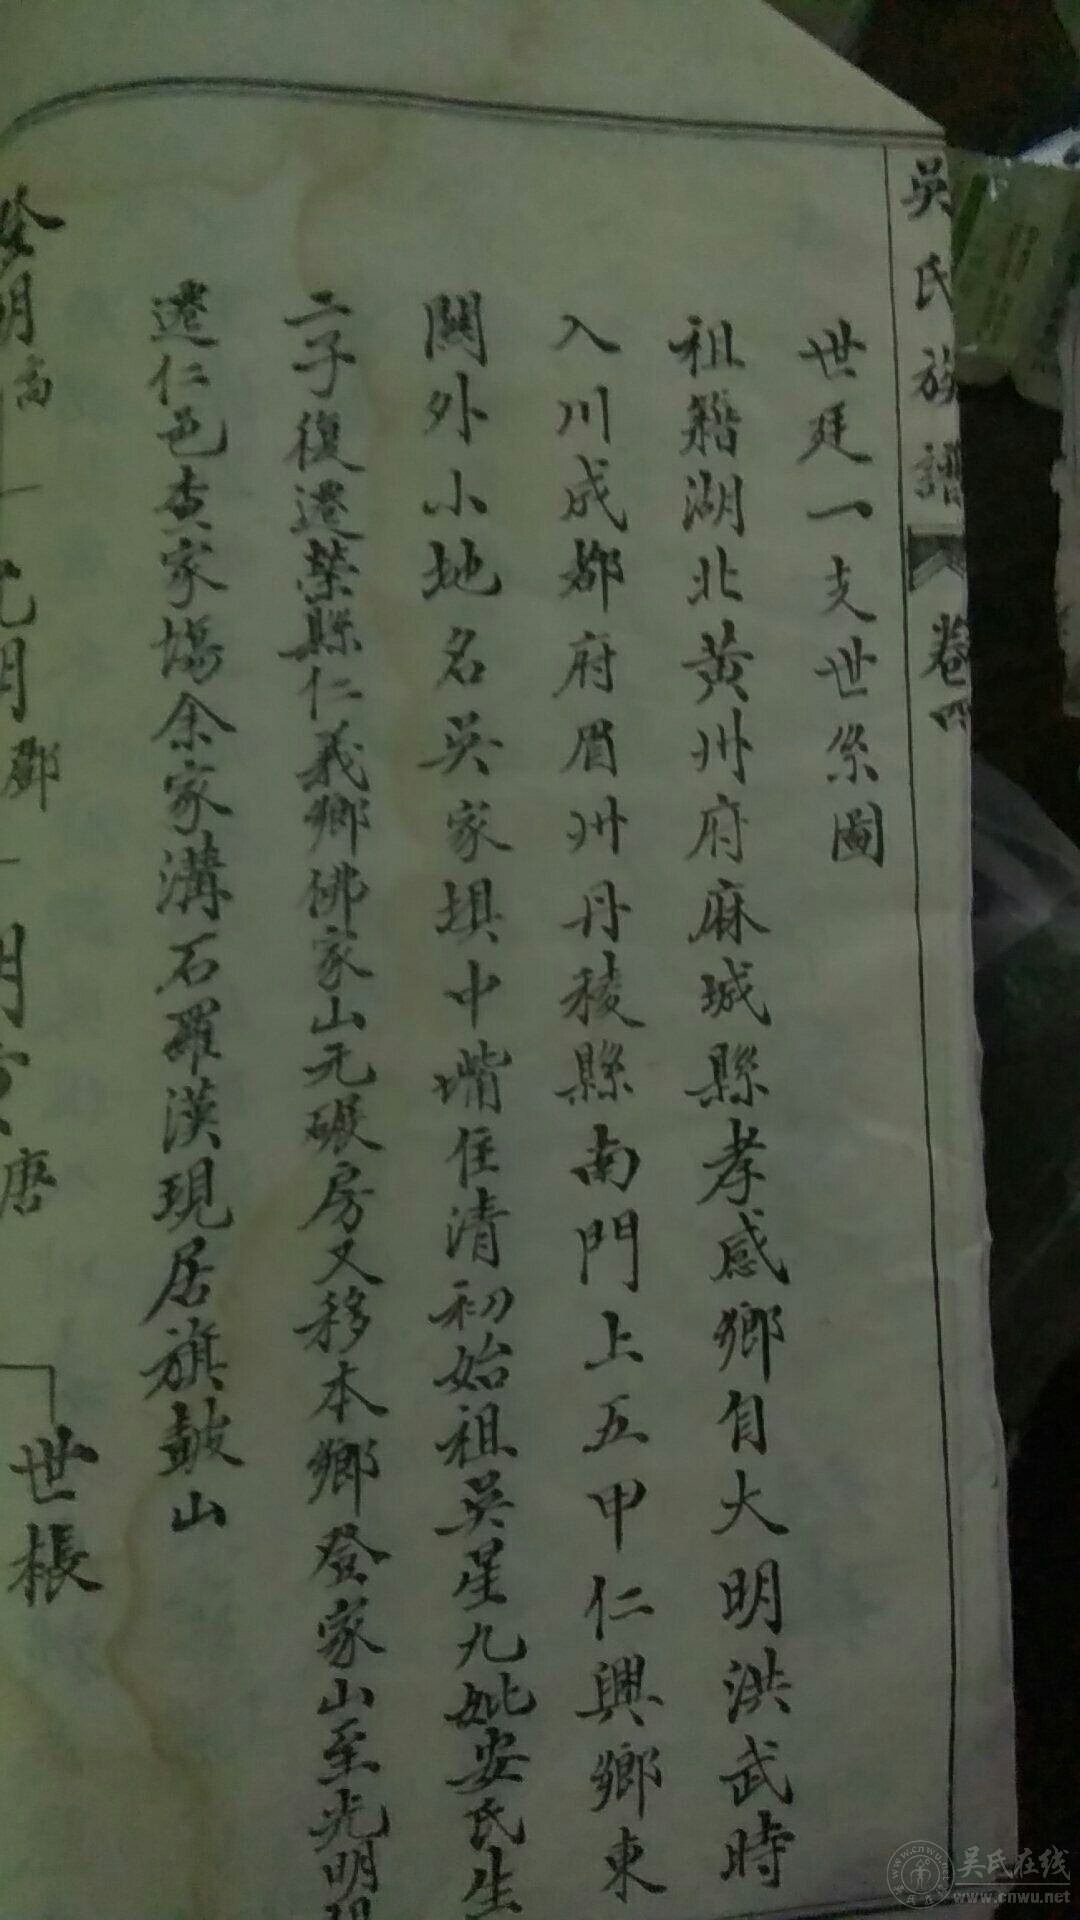 吳氏族譜
卷四
世廷一支世系圖
祖籍湖北黃州府麻城縣孝感鄉自大明洪武時
入川成都府眉州丹稜縣南門上五甲仁興鄉東
關外小地名吳家埧中嘴住清初始祖吳星九妣安氏生
二子復遷榮縣仁義鄉佛家山元碾房又移本鄉登家山至光明
遷仁邑袁家塲余家溝石羅漢現居旗鼓山
明高
鄧
唐
世棖
吴氏在线
www.cnwu.net